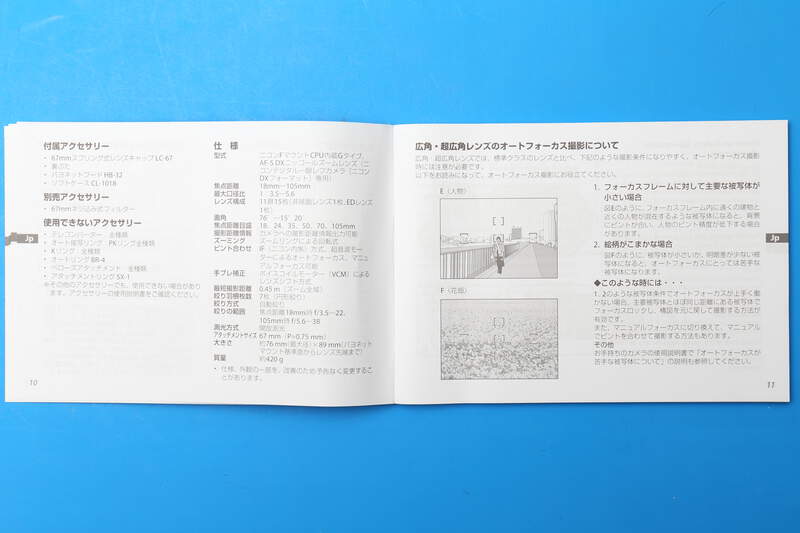 付属アクセサリー
・ 67mmスプリング式レンズキャップLC-67
・ 裏ぶた
・ バヨネットフード HB-32
・ ソフトケース CL-1018
別売アクセサリー
・ 67mmネジ込み式フィルター
使用できないアクセサリー
・ テレコンバーター 全種類
・ オート接写リング PKリング全種類
・ Kリング 全種類
・ オートリング BR-4
・ ベローズアタッチメント 全種類
・ アタッチメントリング SX-1
※その他のアクセサリーでも、使用できない場合があり
ます。アクセサリーの使用説明書をご確認ください。
Jp
10
仕 様
型式 ニコンFマウントCPU内蔵Gタイプ、
AF-S DXニッコールズームレンズ(ニ
コンデジタル一眼レフカメラ[ニコン
DXフォーマット]専用)
焦点距離 18mm-105mm
最大口径比 1:3.5-5.6
レンズ構成 11群15枚(非球面レンズ1枚、EDレンズ
1枚)
画角 76°-15°20′
焦点距離目盛 18、24、35、50、70、105mm
撮影距離情報 カメラへの撮影距離情報出力可能
ズーミング ズームリングによる回転式
ピント合わせ IF(ニコン内焦)方式、超音波モー
ターによるオートフォーカス、マニュ
アルフォーカス可能
手ブレ補正 ボイスコイルモーター(VCM)による
レンズシフト方式
最短撮影距離 0.45 m(ズーム全域)
絞り羽根枚数 7枚(円形絞り)
絞り方式 自動絞り
絞りの範囲 焦点距離18mm時 f/3.5-22、
105mm時 f/5.6-38
測光方式 開放測光
アタッチメントサイズ 67 mm(P=0.75 mm)
大きさ 約76 mm(最大径)×89 mm(バヨネット
マウント基準面からレンズ先端まで)
質量 約420 g
・ 仕様、外観の一部を、改善のため予告なく変更するこ
とがあります。
広角・超広角レンズのオートフォーカス撮影について
広角・超広角レンズでは、標準クラスのレンズと比べ、下記のような撮影条件になりやすく、オートフォーカス撮影
時には注意が必要です。
以下をお読みになって、オートフォーカス撮影にお役立てください。
E(人物)
F(花畑)
1. フォーカスフレームに対して主要な被写体が
小さい場合
図Eのように、フォーカスフレーム内に遠くの建物と
近くの人物が混在するような被写体になると、背景
にピントが合い、人物のピント精度が低下する場合
があります。
2. 絵柄がこまかな場合
図Fのように、被写体が小さいか、明暗差が少ない被
写体になると、オートフォーカスにとっては苦手な
被写体になります。
◆このような時には・・・
1、2のような被写体条件でオートフォーカスが上手く働
かない場合、主要被写体とほぼ同じ距離にある被写体で
フォーカスロックし、構図を元に戻して撮影する方法が
有効です。
また、マニュアルフォーカスに切り換えて、マニュアル
でピントを合わせて撮影する方法もあります。
その他
お手持ちのカメラの使用説明書で「オートフォーカスが
苦手な被写体について」の説明も参照してください。
Jp
11